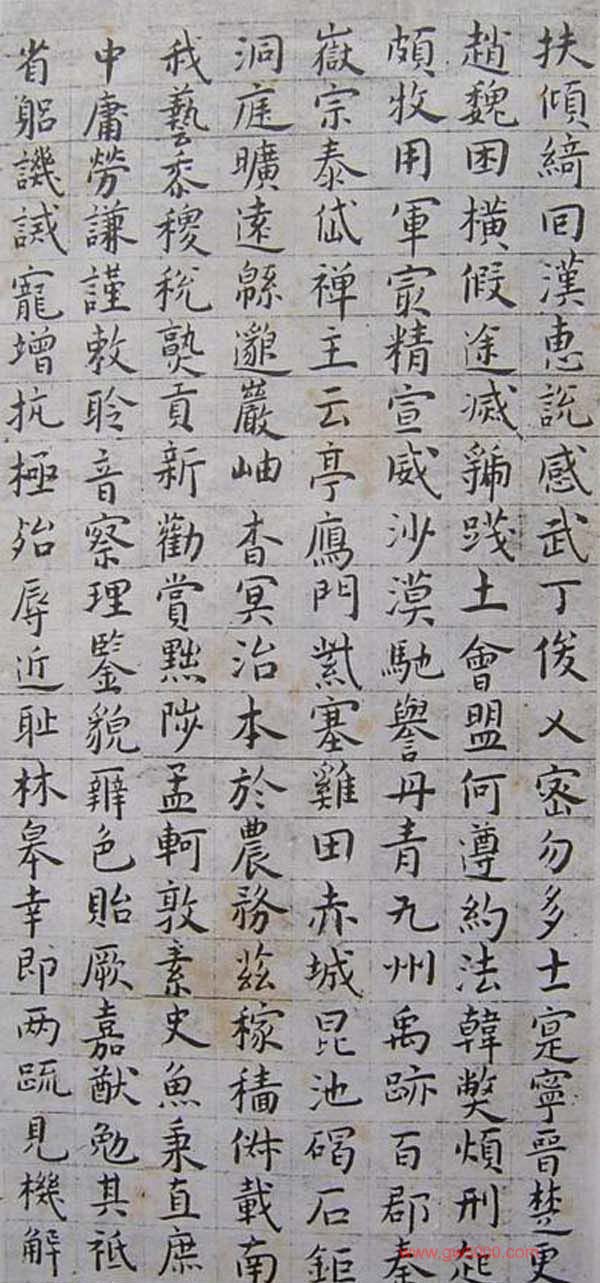 扶傾綺回漢惠說感武丁俊乂密勿多士寔寧晉楚更
趙魏困橫假途滅虢踐土會盟何遵約法韓弊煩刑起
頗牧用軍㝡精宣威沙漠馳譽丹青九州禹跡百郡秦
嶽宗泰岱禪主云亭鴈門紫塞雞田赤城昆池碣石鉅
洞庭曠遠緜邈巖岫杳冥治本於農務茲稼穡俶載南
我藝黍稷稅熟貢新勸賞黜陟孟軻敦素史魚秉直庶
中庸勞謙謹敕聆音察理鑒貌辨色貽厥嘉猷勉其祗
省躬譏誡寵增抗極殆辱近耻林皋幸即两疏見機解